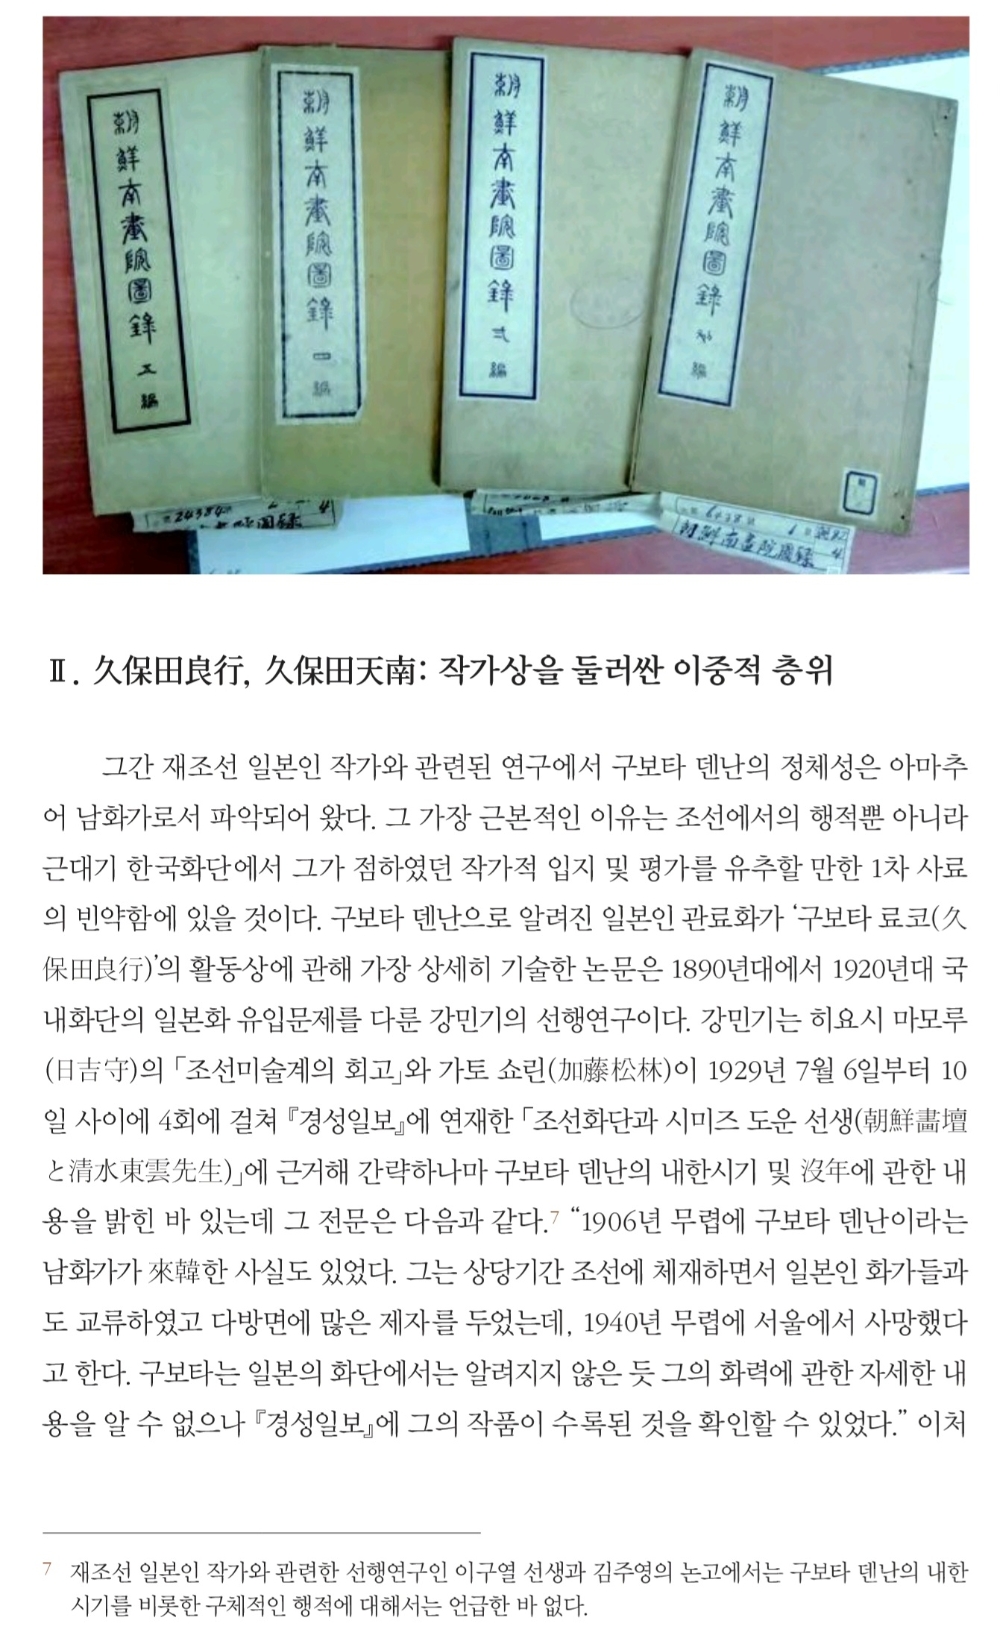 朝鮮南畫院圖錄 五編
朝鮮南畫院圖錄 四編
朝鮮南畫院圖錄 弎編
朝鮮南畫院圖錄 編
24384
6438
朝鮮南畫院圖録
Ⅱ. 久保田良行, 久保田天南: 작가상을 둘러싼 이중적 층위
그간 재조선 일본인 작가와 관련된 연구에서 구보타 덴난의 정체성은 아마추
어 남화가로서 파악되어 왔다. 그 가장 근본적인 이유는 조선에서의 행적뿐 아니라
근대기 한국화단에서 그가 점하였던 작가적 입지 및 평가를 유추할 만한 1차 사료
의 빈약함에 있을 것이다. 구보타 덴난으로 알려진 일본인 관료화가 ‘구보타 료코(久
保田良行)’의 활동상에 관해 가장 상세히 기술한 논문은 1890년대에서 1920년대 국
내화단의 일본화 유입문제를 다룬 강민기의 선행연구이다. 강민기는 히요시 마모루
(日吉守)의 「조선미술계의 회고」와 가토 쇼린(加藤松林)이 1929년 7월 6일부터 10
일 사이에 4회에 걸쳐 『경성일보』에 연재한 「조선화단과 시미즈 도운 선생(朝鮮畵壇
と清水東雲先生)」에 근거해 간략하나마 구보타 덴난의 내한시기 및 沒年에 관한 내
용을 밝힌 바 있는데 그 전문은 다음과 같다.7 “1906년 무렵에 구보타 덴난이라는
남화가가 來韓한 사실도 있었다. 그는 상당기간 조선에 체재하면서 일본인 화가들과
도 교류하였고 다방면에 많은 제자를 두었는데, 1940년 무렵에 서울에서 사망했다
고 한다. 구보타는 일본의 화단에서는 알려지지 않은 듯 그의 화력에 관한 자세한 내
용을 알 수 없으나 『경성일보』에 그의 작품이 수록된 것을 확인할 수 있었다.” 이처
7 재조선 일본인 작가와 관련한 선행연구인 이구열 선생과 김주영의 논고에서는 구보타 덴난의 내한
시기를 비롯한 구체적인 행적에 대해서는 언급한 바 없다.